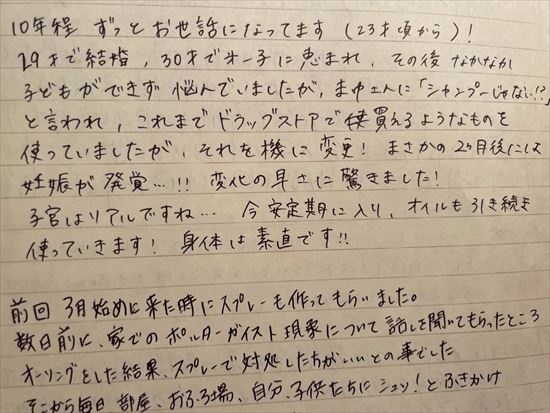 10年程 ずっとお世話になってます (23才頃から)!
29才で結婚、30才で第一子に恵まれ、その後なかなか
子どもができず悩んでいましたが、まゆさんに「シャンプーじゃない!?」
と言われ、これまでドラッグストアで買えるようなものを
使っていましたが、それを機に変更! まさかの2ヶ月後には
妊娠が発覚…!! 変化の早さに驚きました!
子宮はリアルですね… 今安定期に入り、オイルも引き続き
使っていきます! 身体は素直です!!
前回 3月始めに来た時にスプレーも作ってもらいました。
数日前に、家でのポルターガイスト現象について話しを聞いてもらったところ
オーリングをした結果、スプレーで対処したらがいいとの事でした
そこから毎日 部屋、おふろ場、自分、子供たちにシュッ!とふきかけ